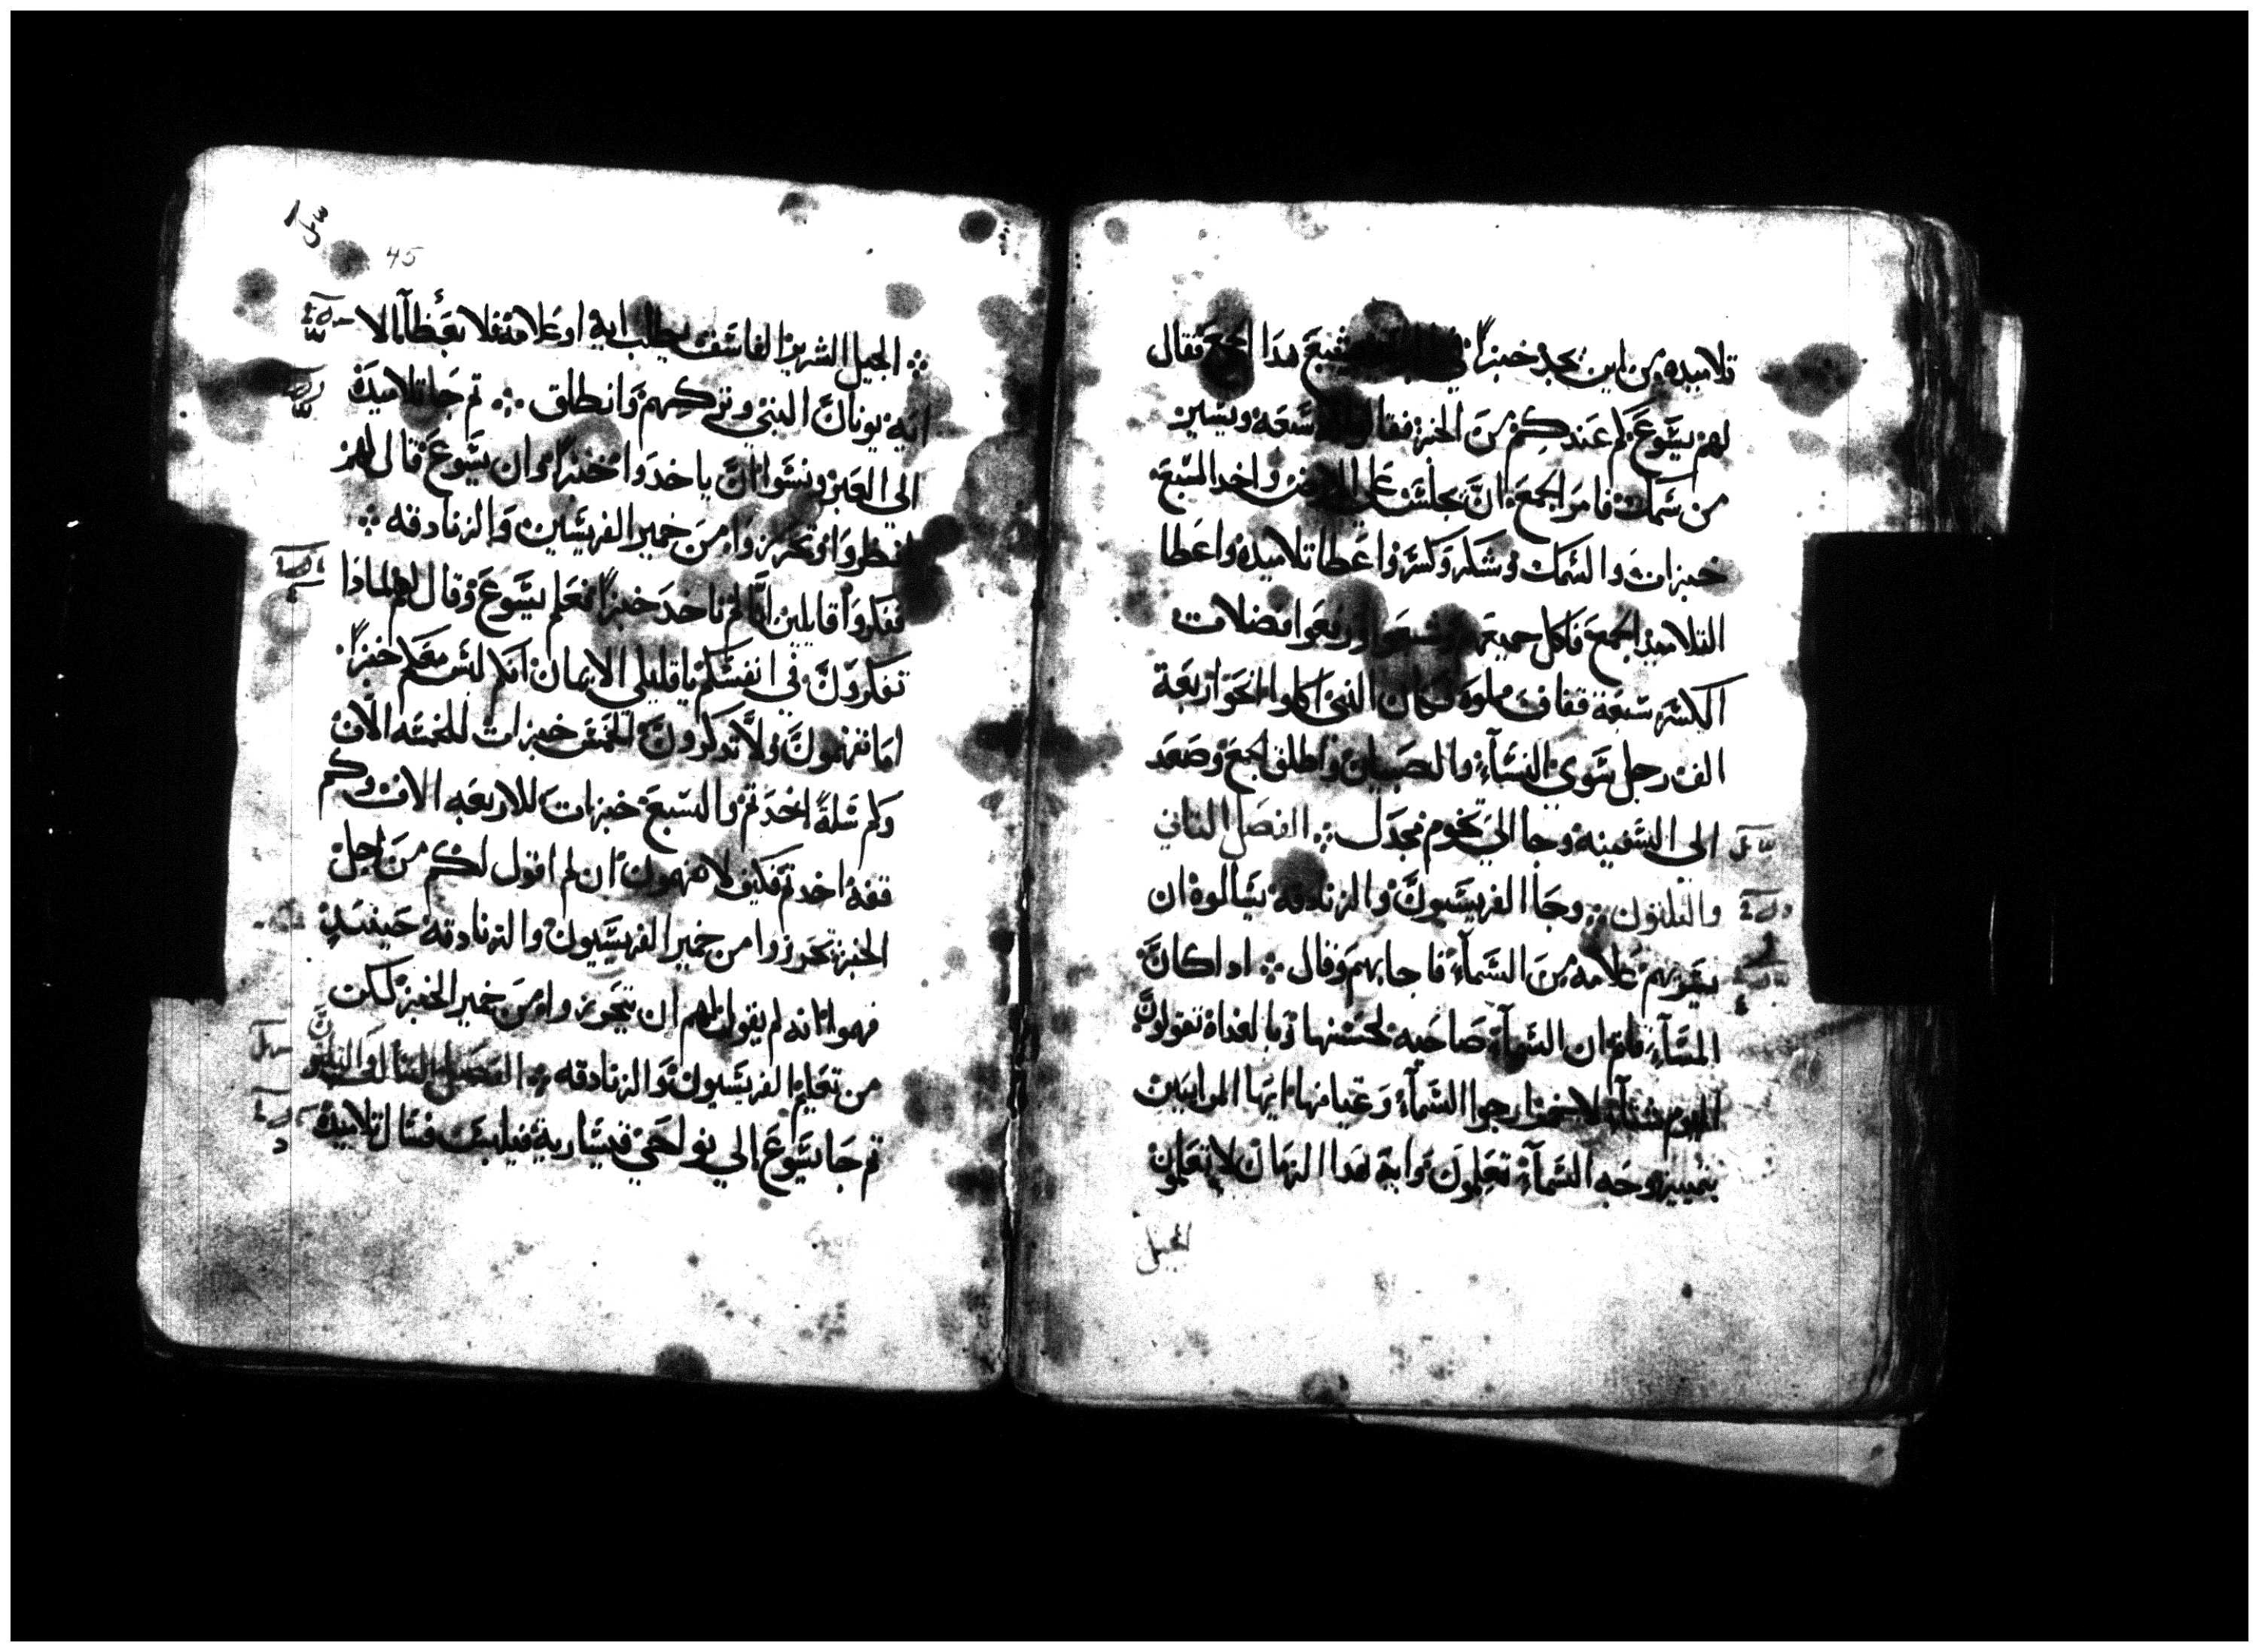 تلاميده من اين نجد خبزاً في يشبع هدا الجمع فقال
لهم يسوع كم عندكم من الخبز فقالوا سبعه ويسير
من سمك فامر الجمع ان تجلس على الارض واخد السبع
خبزات والسمك وشكر وكسر واعطا تلاميده واعطا
التلاميد الجمع فاكل جميعهم وشبعوا ورفعوا فضلات
الكسر سبعة قفاف مملوه وكان الدين اكلوا نحو اربعة
الف رجل سوي النسآء والصبيان واطلق الجمع وصعد
الي السفينه وجا الي تخوم مجدل ܀ الفصل التاني
والتلتون ܀ وجا الفريسيون والزنادقه يسالوه ان
يريهم علامه من السمآء فاجابهم وقال ܀ ادا كان
المسآء قلتم ان السمآء صاحيه لحسنها وبالغداة تقولون
اليوم شتآء لاحمرار جو السمآء وعيانها ايها المراييين
بتمييز وجه السمآء تعلمون واية هدا الزمان لا تعلمون
الجيل
45
܀ الجيل الشرير الفاسق يطلب اية او علامة فلا يعطآ الا
اية يونان النبي وتركهم وانطلق ܀ تم جا تلاميده
الي العبر ونسوا ان ياخدوا خبزاً وان يسوع قال لهم
انظروا وتحرزوا من خمير الفريسين والزنادقه ܀
ففكروا قايلين انا لم ناخد خبزاً فعلم يسوع وقال لهم لمادا
تفكرون في انفسكم يا قليلي الايمان انكم ليس معكم خبزاً
اما تفهمون ولا تدكرون الخمس خبزات للخمسه الاف
وكم سلةً اخدتم والسبع خبزات للاربعه الاف وكم
قفة اخدتم فكيف لا تفهمون ان لم اقول لكم من اجل
الخبز تحرزوا من خمير الفريسيون والزنادقه حينيد
فهموا انه لم يقول لهم ان يتحرزوا من خمير الخبز لكن
من تعليم الفريسيون والزنادقه ܀ الفصل التالت والتلتون
تم جا يسوع الي نواحي قيسارية فيلبس فسال تلاميده